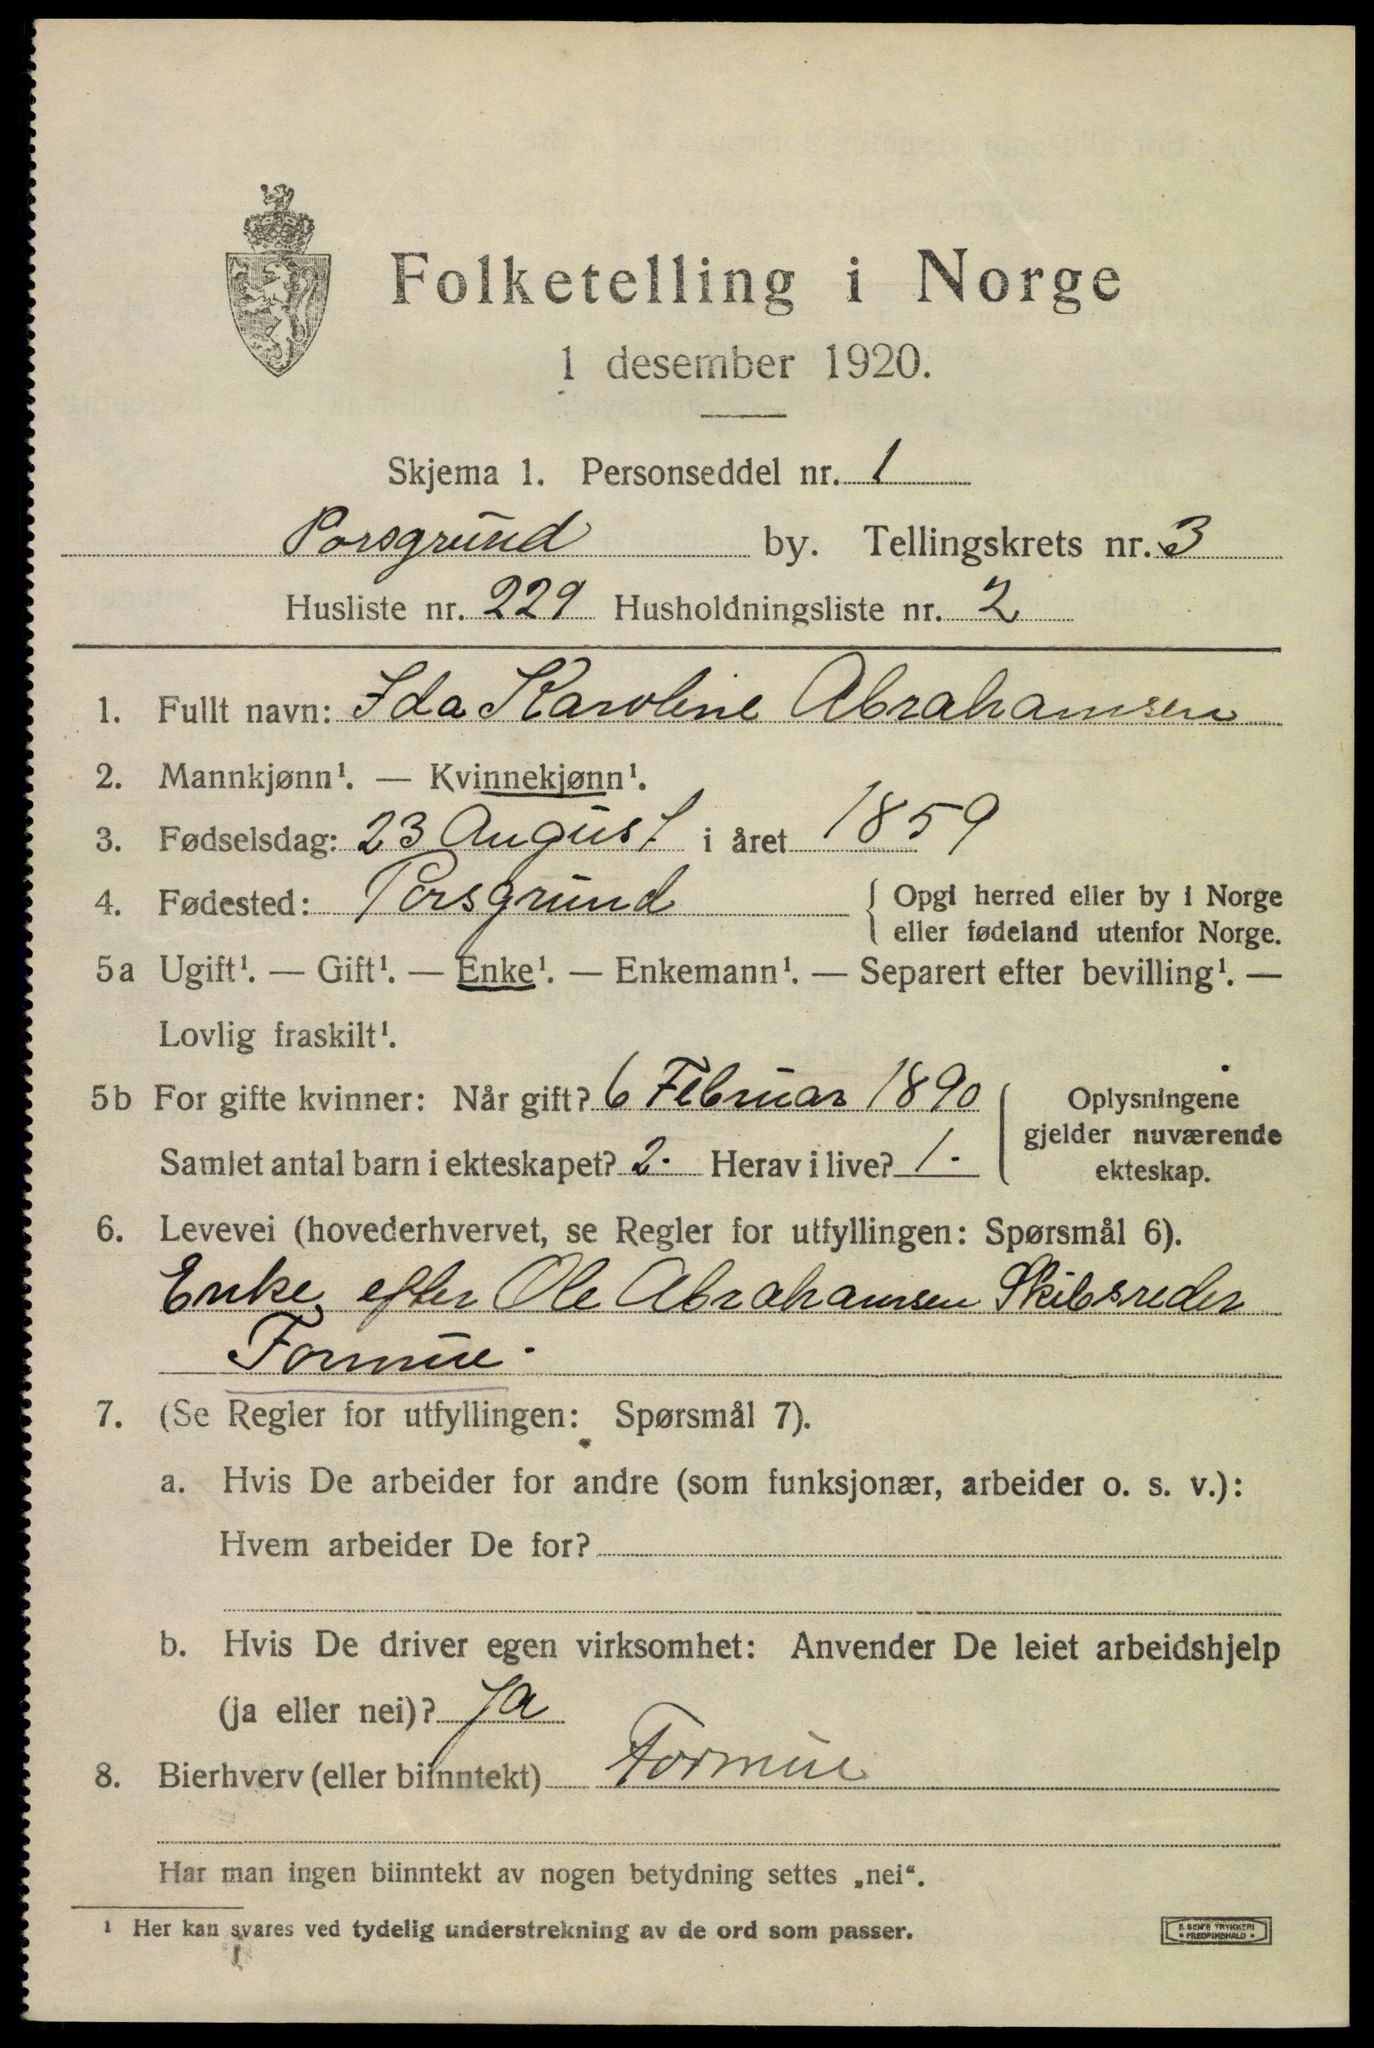 Folketelling i Norge
1 desember 1920.
Skjema 1. Personseddel nr. 1
Porsgrund by. Tellingskrets nr. 3
Husliste nr. 229 Husholdningsliste nr. 2
1. Fullt navn: Ida Karoline Abrahamsen
2. Mannkjønn¹. — Kvinnekjønn¹.
3. Fødselsdag: 23 August i året 1859
4. Fødested: Porsgrund { Opgi herred eller by i Norge
eller fødeland utenfor Norge.
5a Ugift¹. — Gift¹. — Enke¹. — Enkemann¹. — Separert efter bevilling¹. —
Lovlig fraskilt¹.
5b For gifte kvinner: Når gift? 6 Februar 1890
Samlet antal barn i ekteskapet? 2. Herav i live? 1.
Oplysningene
gjelder nuværende
ekteskap.
6. Levevei (hovederhvervet, se Regler for utfyllingen: Spørsmål 6).
Enke efter Ole Abrahamsen Skibsreder
Formue.
7. (Se Regler for utfyllingen: Spørsmål 7).
a. Hvis De arbeider for andre (som funksjonær, arbeider o. s. v.):
Hvem arbeider De for?
b. Hvis De driver egen virksomhet: Anvender De leiet arbeidshjelp
(ja eller nei)? Ja
8. Bierhverv (eller biinntekt) Formue
Har man ingen biinntekt av nogen betydning settes „nei“.
¹ Her kan svares ved tydelig understrekning av de ord som passer.
E. SEM'S TRYKKERI
FREDRIKSHALD